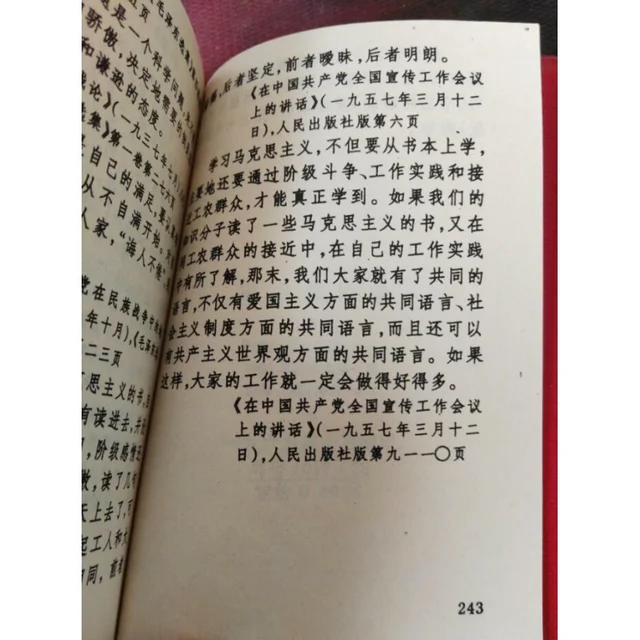 页
是一个科学问题
骄傲,决定地需要的
和谦逊的态度。
论》(一九三七年
集》第一卷第二七六
自己的满足,
从不自满开始。
人家,“诲人不
党在民族战争中
年十月),《毛泽东
二三页
思主义的书,
有读进去,
,阶级感情
,读了几
天上去了,
起工人和
同,前
,后者坚定,前者暧昧,后者明朗。
《在中国共产党全国宣传工作会议
上的讲话》(一九五七年三月十二
日),人民出版社版第六页
学习马克思主义,不但要从书本上学,
要地还要通过阶级斗争、工作实践和接
近工农群众,才能真正学到。如果我们的
知识分子读了一些马克思主义的书,又在
同工农群众的接近中,在自己的工作实践
中有所了解,那末,我们大家就有了共同的
语言,不仅有爱国主义方面的共同语言、社
会主义制度方面的共同语言,而且还可以
有共产主义世界观方面的共同语言。如果
这样,大家的工作就一定会做得好得多。
《在中国共产党全国宣传工作会议
上的讲话》(一九五七年三月十二
日),人民出版社版第九—一〇页
243